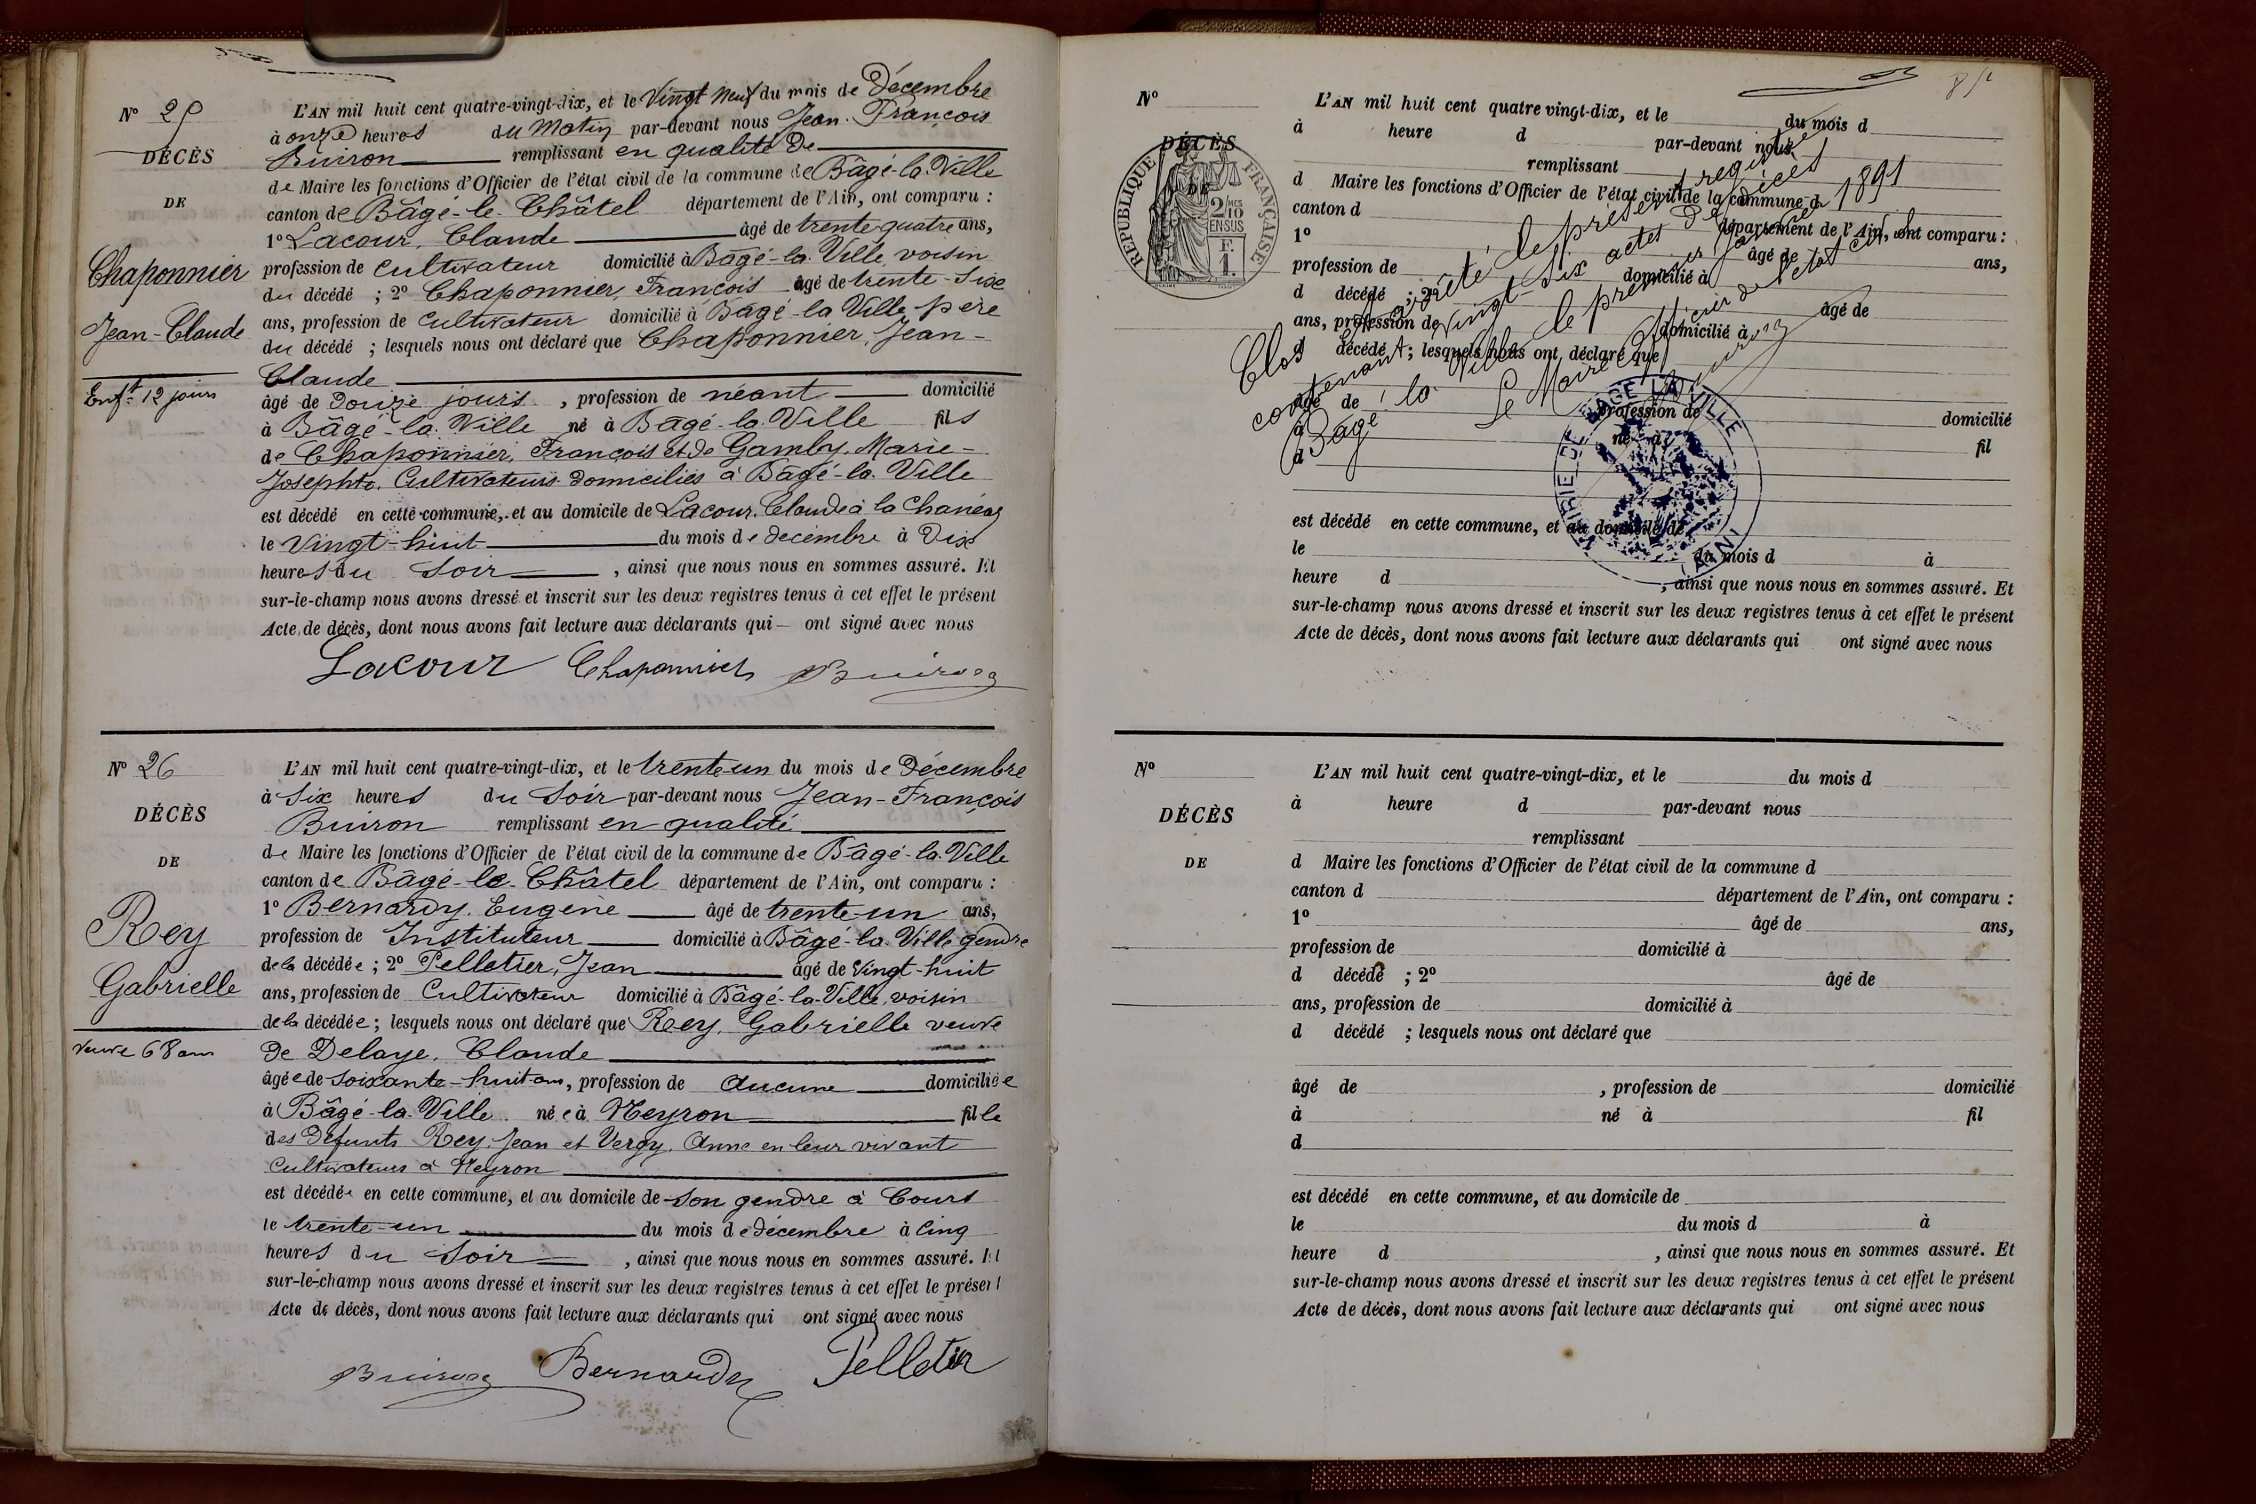 N° 25
DÉCÈS
DE
Chaponnier
Jean-Claude
Enft 12 jours
L'AN mil huit cent quatre-vingt-dix, et le Vingt Neuf du mois de Décembre
à onze heures du Matin par-devant nous Jean-François
Buiron remplissant en qualité de
de Maire les fonctions d'Officier de l'état civil de la commune de Bâgé-la-Ville
canton de Bâgé-le-Châtel département de l'Ain, ont comparu :
1° Lacour, Claude âgé de trente-quatre ans,
profession de Cultivateur domicilié à Bâgé-la-Ville voisin
du décédé ; 2° Chaponnier, François âgé de trente-six
ans, profession de Cultivateur domicilié à Bâgé-la-Ville, père
du décédé ; lesquels nous ont déclaré que Chaponnier, Jean-
Claude
âgé de Douze jours, profession de néant domicilié
à Bâgé-la-Ville né à Bâgé-la-Ville fils
de Chaponnier, François et de Gamby, Marie-
Josephte, Cultivateurs domiciliés à Bâgé-la-Ville
est décédé en cette commune, et au domicile de Lacour, Claude à la
le Vingt-huit du mois de décembre à Dix
heures du Soir, ainsi que nous nous en sommes assuré. Et
sur-le-champ nous avons dressé et inscrit sur les deux registres tenus à cet effet le présent
Acte de décès, dont nous avons fait lecture aux déclarants qui ont signé avec nous
Lacour Chaponnier Buiron
N° 26
DÉCÈS
DE
Rey
Gabrielle
Veuve 68 ans
L'AN mil huit cent quatre-vingt-dix, et le trente-un du mois de Décembre
à Six heures du Soir par-devant nous Jean-François
Buiron remplissant en qualité
de Maire les fonctions d'Officier de l'état civil de la commune de Bâgé-la-Ville
canton de Bâgé-le-Châtel département de l'Ain, ont comparu :
1° Bernardy, Eugène âgé de trente-un ans,
profession de Instituteur domicilié à Bâgé-la-Ville gendre
de la décédée ; 2° Pelletier, Jean âgé de Vingt-huit
ans, profession de Cultivateur domicilié à Bâgé-la-Ville, voisin
de la décédée ; lesquels nous ont déclaré que Rey, Gabrielle veuve
de Delaye, Claude
âgée de soixante-huit ans, profession de aucune domiciliée
à Bâgé-la-Ville née à Neyron fille
des défunts Rey, Jean et Vergy, Anne en leur vivant
Cultivateurs à Neyron
est décédée en cette commune, et au domicile de son gendre à Cours
le trente-un du mois de décembre à Cinq
heures du Soir, ainsi que nous nous en sommes assuré. Et
sur-le-champ nous avons dressé et inscrit sur les deux registres tenus à cet effet le présent
Acte de décès, dont nous avons fait lecture aux déclarants qui ont signé avec nous
Buiron Bernardy Pelletier
N°
DÉCÈS
DE
RÉPUBLIQUE FRANÇAISE
2/10 EN SUS
F.
1.
L'AN mil huit cent quatre-vingt-dix, et le du mois d
à heure d par-devant nous
remplissant
d Maire les fonctions d'Officier de l'état civil de la commune d
canton d département de l'Ain, ont comparu :
1° âgé de ans,
profession de domicilié à
d décédé ; 2° âgé de
ans, profession de domicilié à
d décédé ; lesquels nous ont déclaré que
âgé de profession de domicilié
à né à fil
d
est décédé en cette commune, et au domicile de
le du mois d à
heure d , ainsi que nous nous en sommes assuré. Et
sur-le-champ nous avons dressé et inscrit sur les deux registres tenus à cet effet le présent
Acte de décès, dont nous avons fait lecture aux déclarants qui ont signé avec nous
Clos et arrêté le présent registre
contenant vingt-six actes de décès
Bâgé-la-Ville le premier janvier 1891
Le Maire Officier de l'état civil
Buiron
MAIRIE DE BAGÉ LA VILLE
(AIN)
N°
DÉCÈS
DE
L'AN mil huit cent quatre-vingt-dix, et le du mois d
à heure d par-devant nous
remplissant
d Maire les fonctions d'Officier de l'état civil de la commune d
canton d département de l'Ain, ont comparu :
1° âgé de ans,
profession de domicilié à
d décédé ; 2° âgé de
ans, profession de domicilié à
d décédé ; lesquels nous ont déclaré que
âgé de , profession de domicilié
à né à fil
d
est décédé en cette commune, et au domicile de
le du mois d à
heure d , ainsi que nous nous en sommes assuré. Et
sur-le-champ nous avons dressé et inscrit sur les deux registres tenus à cet effet le présent
Acte de décès, dont nous avons fait lecture aux déclarants qui ont signé avec nous